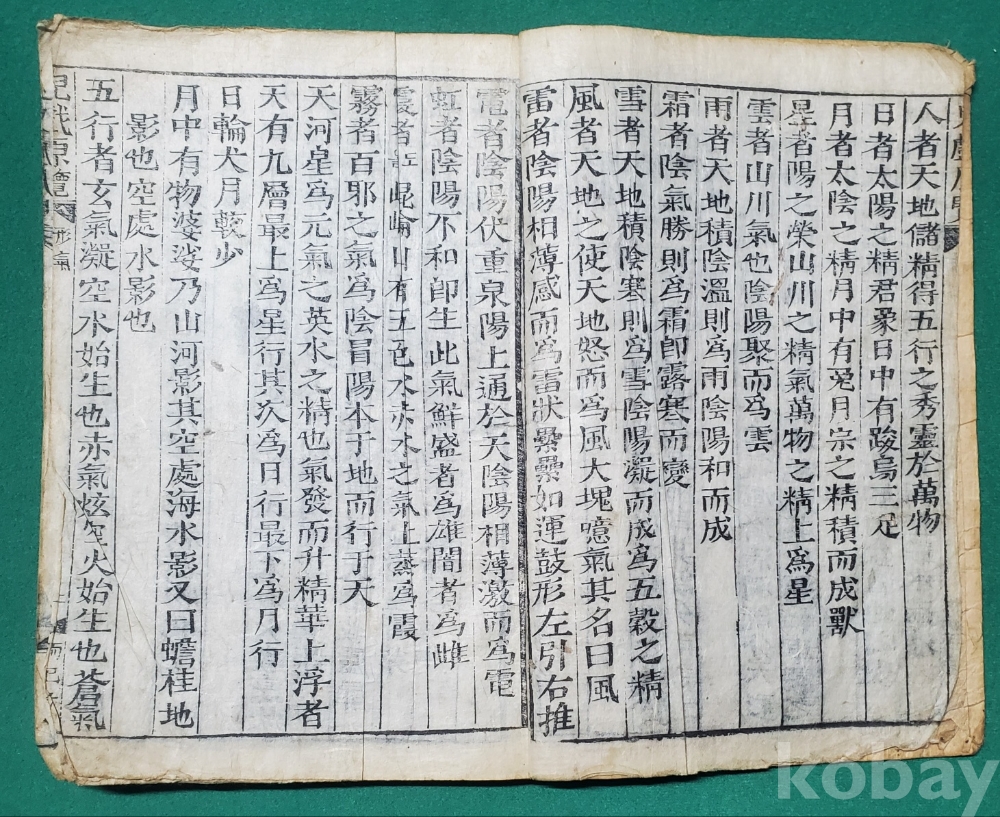 人者天地儲精得五行之秀靈於萬物
日者太陽之精君象日中有踆烏三足
月者太陰之精月中有兎月宗之精積而成獸
星者陽之榮山川之精氣萬物之精上爲星
雲者山川氣也陰陽聚而爲雲
雨者天地積陰溫則爲雨陰陽和而成
霜者陰氣勝則爲霜卽露寒而變
雪者天地積陰寒則爲雪陰陽凝而成爲五穀之精
風者天地之使天地怒而爲風大塊噫氣其名曰風
雷者陰陽相薄感而爲雷狀纍纍如連鼓形左引右推
電者陰陽伏重泉陽上通於天陰陽相薄激而爲電
虹者陰陽不和卽生此氣鮮盛者爲雄闇者爲雌
霞者 崐崘山有五色水赤水之氣上蒸爲霞
霧者百邪之氣爲陰冒陽本于地而行于天
天河星爲元氣之英水之精也氣發而升精華上浮者
天有九層最上爲星行其次爲日行最下爲月行
日輪大月較少
月中有物婆娑乃山河影其空處海水影又曰蟾桂地
影也空處水影也
五行者玄氣凝空水始生也赤氣炫空火始生也蒼氣
兒戱原覽
kobay